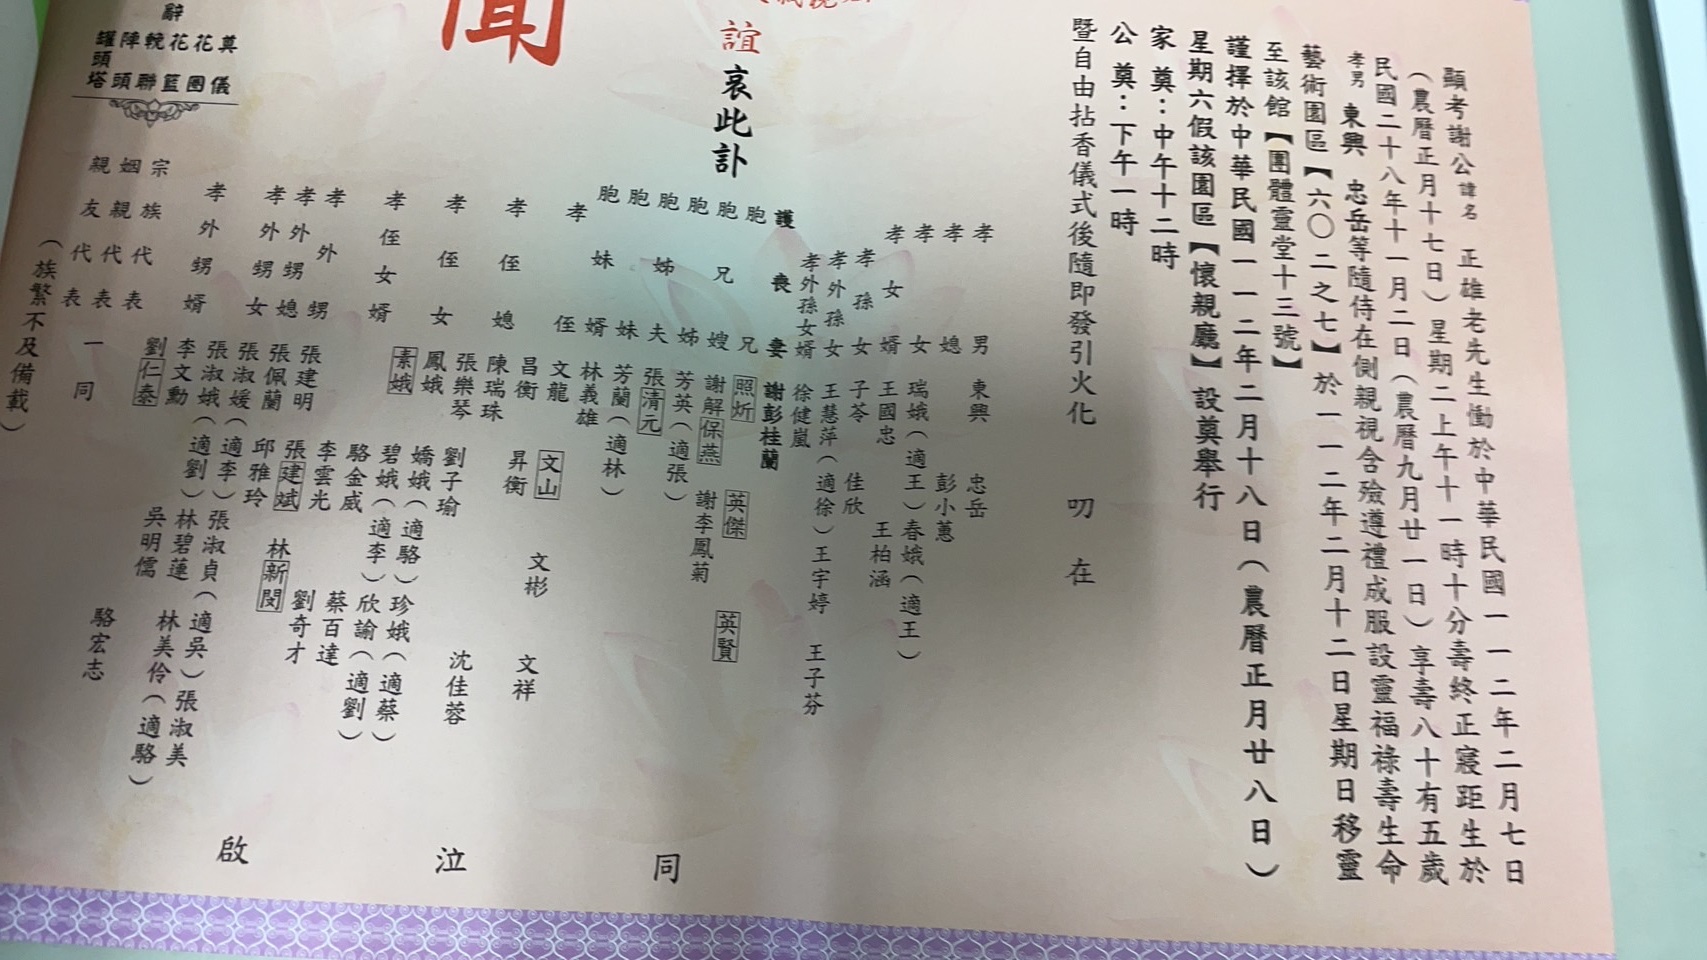 顯考謝公諱名正雄老先生慟於中華民國一一二年二月七日
（農曆正月十七日）星期二上午十一時十分壽終正寢距生於
民國二十八年十一月二日（農曆九月廿一日）享壽八十有五歲
孝男東興 忠岳等隨侍在側親視含殮遵禮成服設靈福祿壽生命
藝術園區【六〇二之七】於一一二年二月十二日星期日移靈
至該館【團體靈堂十三號】
謹擇於中華民國一一二年二月十八日（農曆正月廿八日）
星期六假該園區【懷親廳】設奠舉行
家奠：中午十二時
公奠：下午一時
暨自由拈香儀式後隨即發引火化 叨在
誼
哀此訃
聞
孝男 東興 忠岳
孝媳 彭小蕙
孝女 瑞娥（適王）春娥（適王）
孝女婿 王國忠 王柏涵
孝孫女 子苓 佳欣
孝外孫女 王慧萍（適徐）王宇婷 王子芬
孝外孫女婿 徐健嵐
護喪妻 謝彭桂蘭
胞兄 照炘 英傑 英賢
胞兄嫂 謝解保燕 謝李鳳菊
胞姊 芳英（適張）
胞姊夫 張清元
胞妹 芳蘭（適林）
胞妹婿 林義雄
孝侄 文龍 文山 文彬 文祥
昌衡 昇衡
孝侄媳 陳瑞珠
張樂琴 劉子瑜 沈佳蓉
孝侄女 鳳娥 嬌娥（適駱）珍娥（適蔡）
素娥 碧娥（適李）欣諭（適劉）
孝侄女婿 駱金威 蔡百達
李雲光 劉奇才
孝外甥 張建明 張建斌 林新閔
孝外甥媳 張佩蘭 邱雅玲
孝外甥女 張淑媛（適李）張淑貞（適吳）張淑美
張淑娥（適劉）林碧蓮 林美伶（適駱）
孝外甥婿 李文勳 吳明儒 駱宏志
劉仁泰
宗族代表
姻親代表
親友代表
一同
（族繁不及備載）
同泣啟
辭
奠儀
花圈
花籃
輓聯
陣頭
罐頭塔